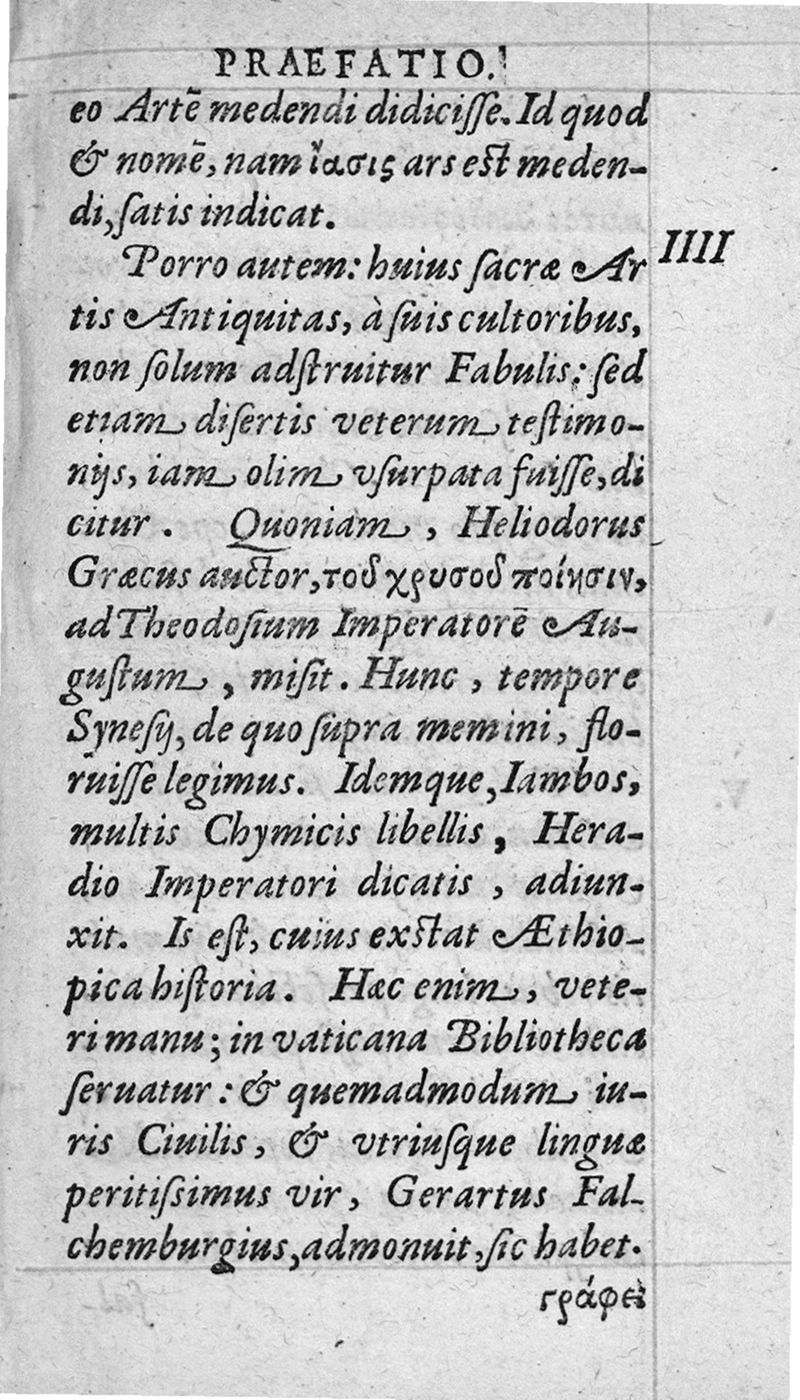 PRAEFATIO.
eo Artẽ medendi didiciſſe. Id quod
& nomẽ, nam ἴασις ars eſt meden-
di, ſatis indicat.
Porro autem: huius ſacræ Ar
IIII
tis Antiquitas, à ſuis cultoribus,
non ſolum adſtruitur Fabulis: ſed
etiam diſertis veterum teſtimo-
nijs, iam olim vſurpata fuiſſe, di
citur. Quoniam, Heliodorus
Græcus auctor, τοῦ χρυσοῦ ποίησιν,
ad Theodoſium Imperatorẽ Au-
guſtum, miſit. Hunc, tempore
Syneſij, de quo ſupra memini, flo-
ruiſſe legimus. Idemque, Iambos,
multis Chymicis libellis, Hera-
dio Imperatori dicatis, adiun-
xit. Is eſt, cuius exſtat Æthio-
pica hiſtoria. Hæc enim, vete-
ri manu; in vaticana Bibliotheca
ſeruatur: & quemadmodum iu-
ris Ciuilis, & vtriuſque linguæ
peritiſsimus vir, Gerartus Fal-
chemburgius, admonuit, ſic habet.
γράφει